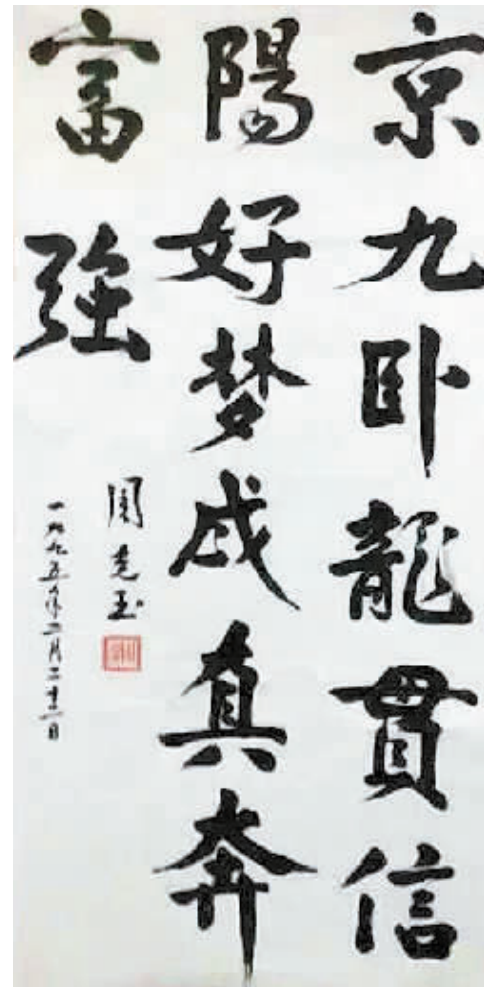 京九卧龍貫信
陽好梦成真奔
富強
周克玉
一九九五年二月二十一日